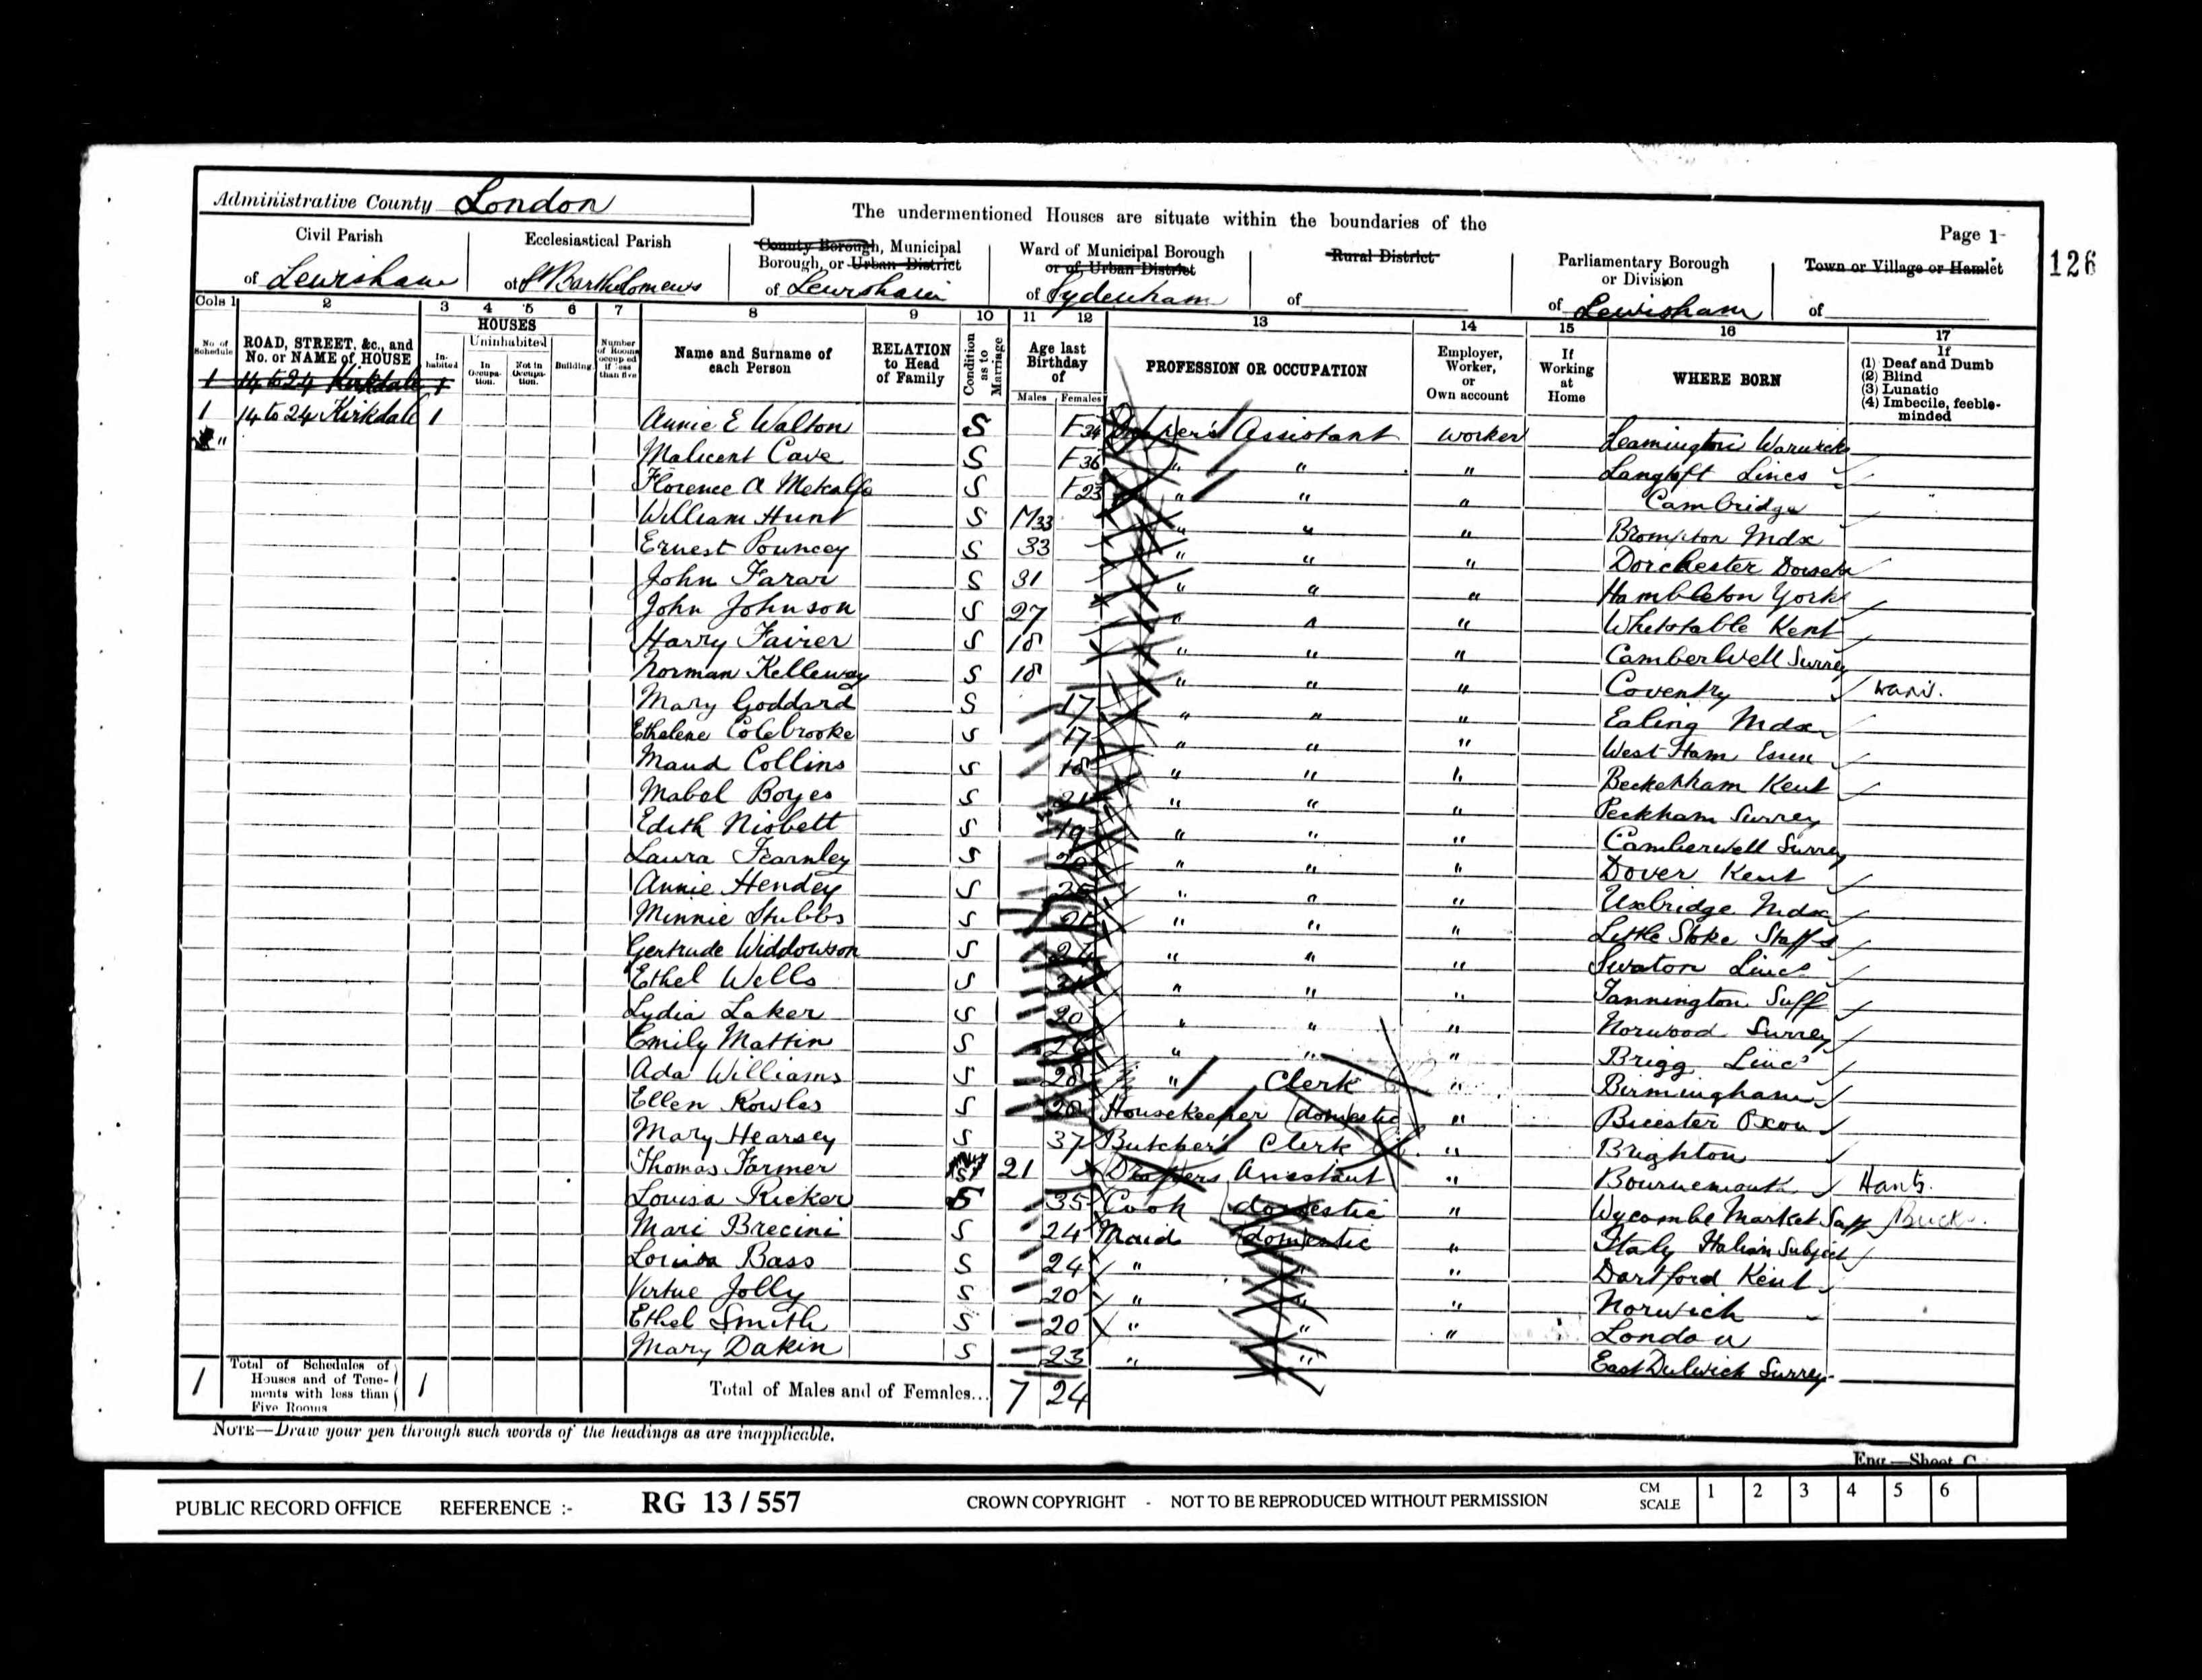 Administrative County London
The undermentioned Houses are situate within the boundaries of the
Page 1
126
Civil Parish of Lewisham
Ecclesiastical Parish of St Bartholomews
County Borough, Municipal Borough, or Urban District of Lewisham
Ward of Municipal Borough or of Urban District of Sydenham
Rural District of
Parliamentary Borough or Division of Lewisham
Town or Village or Hamlet of
Cols 1 2 3 4 5 6 7 8 9 10 11 12 13 14 15 16 17
No. of Schedule
ROAD, STREET, &c., and No. or NAME of HOUSE
HOUSES
Inhabited
Uninhabited
In Occupation.
Not in Occupation.
Building.
Number of Rooms occupied if less than five
Name and Surname of each Person
RELATION to Head of Family
Condition as to Marriage
Age last Birthday of
Males Females
PROFESSION OR OCCUPATION
Employer, Worker, or Own account
If Working at Home
WHERE BORN
If
(1) Deaf and Dumb
(2) Blind
(3) Lunatic
(4) Imbecile, feeble-minded
1 14 to 24 Kirkdale 1
1 14 to 24 Kirkdale 1 Annie E Walton S F 34 Draper's Assistant Worker Leamington Warwicks
" Malicent Cave S F 36 " " " Langtoft Lincs
Florence A Metcalfe S F 23 " " " Cambridge
William Hunt S M 33 " " " Brompton Mdx
Ernest Pouncey S 33 " " " Dorchester Dorset
John Farar S 31 " " " Hambleton Yorks
John Johnson S 27 " " " Whitstable Kent
Harry Fairer S 18 " " " Camberwell Surrey
Norman Kelleway S 18 " " " Coventry Warw.
Mary Goddard S 17 " " " Ealing Mdx
Ethelene Colebrooke S 17 " " " West Ham Essex
Maud Collins S 18 " " " Beckenham Kent
Mabel Boyes S 21 " " " Peckham Surrey
Edith Nisbett S 19 " " " Camberwell Surrey
Laura Fearnley S " " " Dover Kent
Annie Hendey S " " " Uxbridge Mdx
Minnie Stubbs S " " " Little Stoke Staffs
Gertrude Widdowson S " " " Swaton Lincs
Ethel Wells S " " " Tannington Suff
Lydia Laker S 20 " " " Norwood Surrey
Emily Mattin S " " " Brigg Lincs
Ada Williams S 28 " Clerk " Birmingham
Ellen Rowles S Housekeeper (domestic) " Bicester Oxon
Mary Hearsey S 37 Butcher's Clerk " Brighton
Thomas Farmer S 21 Drapers Assistant " Bournemouth Hants.
Louisa Ricker S 35 Cook (domestic " Wycombe Market Suff Bucks.
Mari Brecini S 24 Maid (domestic " Italy Italian Subject
Louisa Bass S 24 " " " Dartford Kent
Virtue Jolly S 20 " " " Norwich
Ethel Smith S 20 " " " London
Mary Dakin S 23 " " East Dulwich Surrey
1 Total of Schedules of Houses and of Tenements with less than Five Rooms 1 Total of Males and of Females... 7 24
NOTE—Draw your pen through such words of the headings as are inapplicable.
Eng.—Sheet C
PUBLIC RECORD OFFICE REFERENCE :- RG 13 / 557 CROWN COPYRIGHT - NOT TO BE REPRODUCED WITHOUT PERMISSION CM SCALE 1 2 3 4 5 6